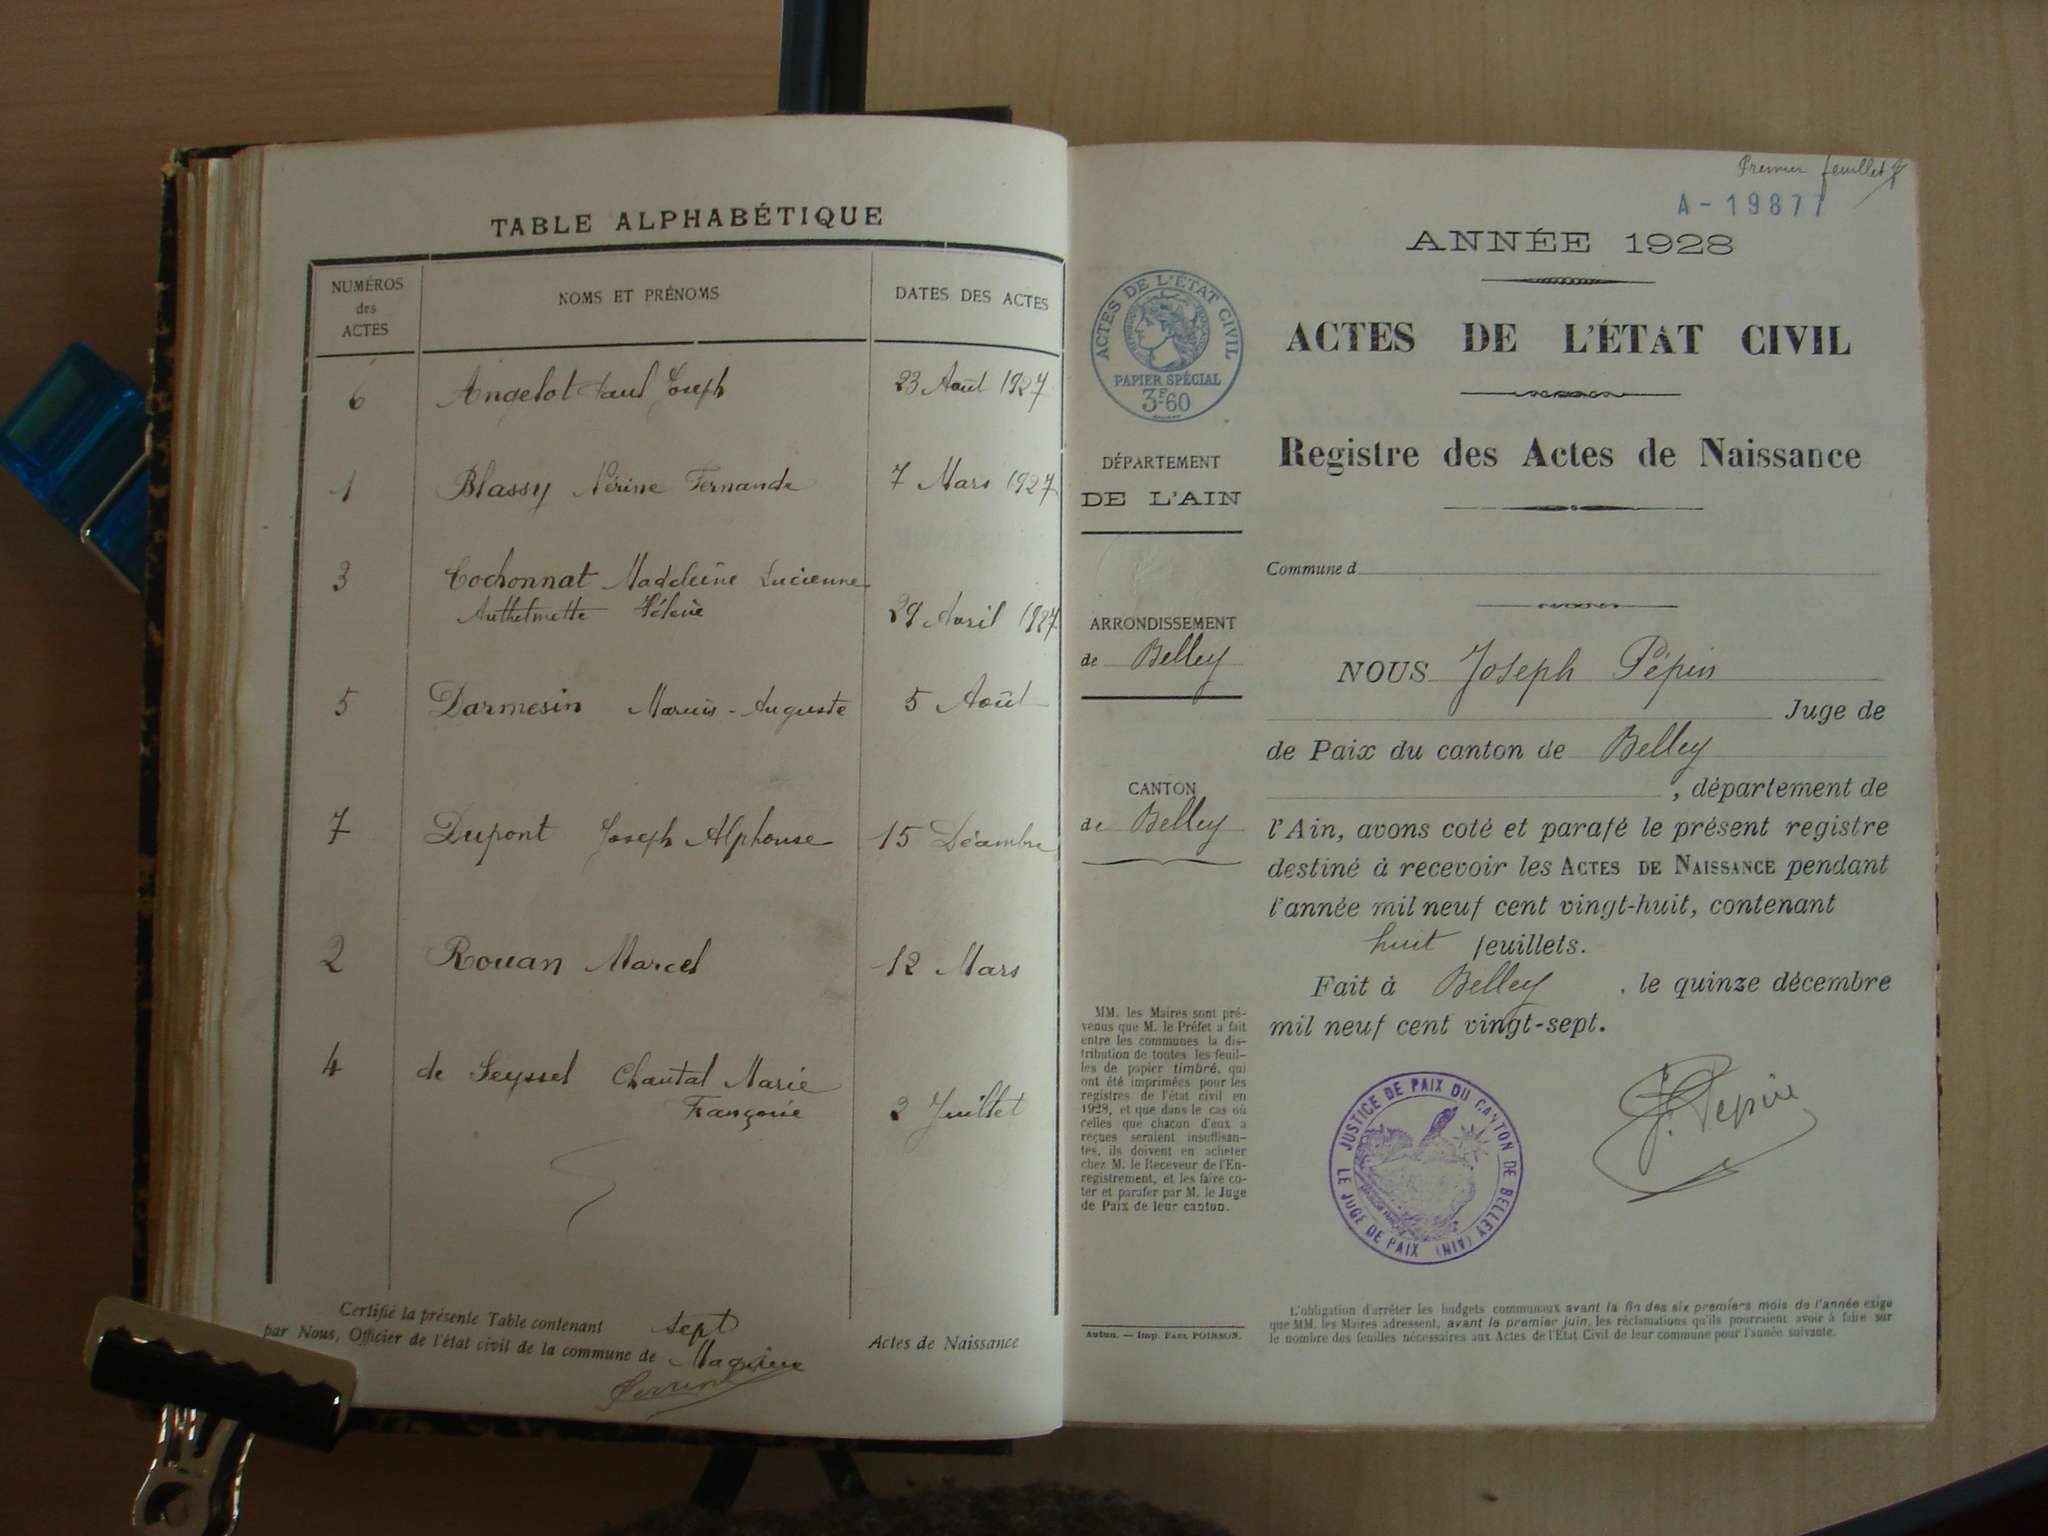 TABLE ALPHABÉTIQUE
NUMÉROS
des
ACTES
NOMS ET PRÉNOMS
DATES DES ACTES
6 Angelot Paul Joseph 23 Août 1927
1 Blassy Nérine Fernande 7 Mars 1927
3 Cochonnat Madeleine Lucienne
Anthelmette Hélène 29 Avril 1927
5 Darmesin Marius-Auguste 5 Août
7 Dupont Joseph Alphonse 15 Décembre
2 Rouan Marcel 12 Mars
4 de Seyssel Chantal Marie
Françoise 2 Juillet
Certifié la présente Table contenant sept Actes de Naissance
par Nous, Officier de l'état civil de la commune de
Premier feuillet
A-19877
ANNÉE 1928
ACTES DE L'ÉTAT CIVIL
PAPIER SPÉCIAL
3F60
ACTES DE L'ÉTAT CIVIL
Registre des Actes de Naissance
DÉPARTEMENT
DE L'AIN
ARRONDISSEMENT
de Belley
CANTON
de Belley
MM. les Maires sont pré-
venus que M. le Préfet a fait
entre les communes la dis-
tribution de toutes les feuil-
les de papier timbré, qui
ont été imprimées pour les
registres de l'état civil en
1928, et que dans le cas où
celles que chacun d'eux a
reçues seraient insuffisan-
tes, ils doivent en acheter
chez M. le Receveur de l'En-
registrement, et les faire co-
ter et parafer par M. le Juge
de Paix de leur canton.
Autun. — Imp. PAUL POIRSON.
Commune d
NOUS Joseph Pépin
Juge de
de Paix du canton de Belley
, département de
l'Ain, avons coté et parafé le présent registre
destiné à recevoir les ACTES DE NAISSANCE pendant
l'année mil neuf cent vingt-huit, contenant
huit feuillets.
Fait à Belley, le quinze décembre
mil neuf cent vingt-sept.
JUSTICE DE PAIX DU CANTON DE BELLEY (AIN)
LE JUGE DE PAIX
J. Pépin
L'obligation d'arrêter les budgets communaux avant la fin des six premiers mois de l'année exige
que MM. les Maires adressent, avant le premier juin, les réclamations qu'ils pourraient avoir à faire sur
le nombre des feuilles nécessaires aux Actes de l'Etat Civil de leur commune pour l'année suivante.